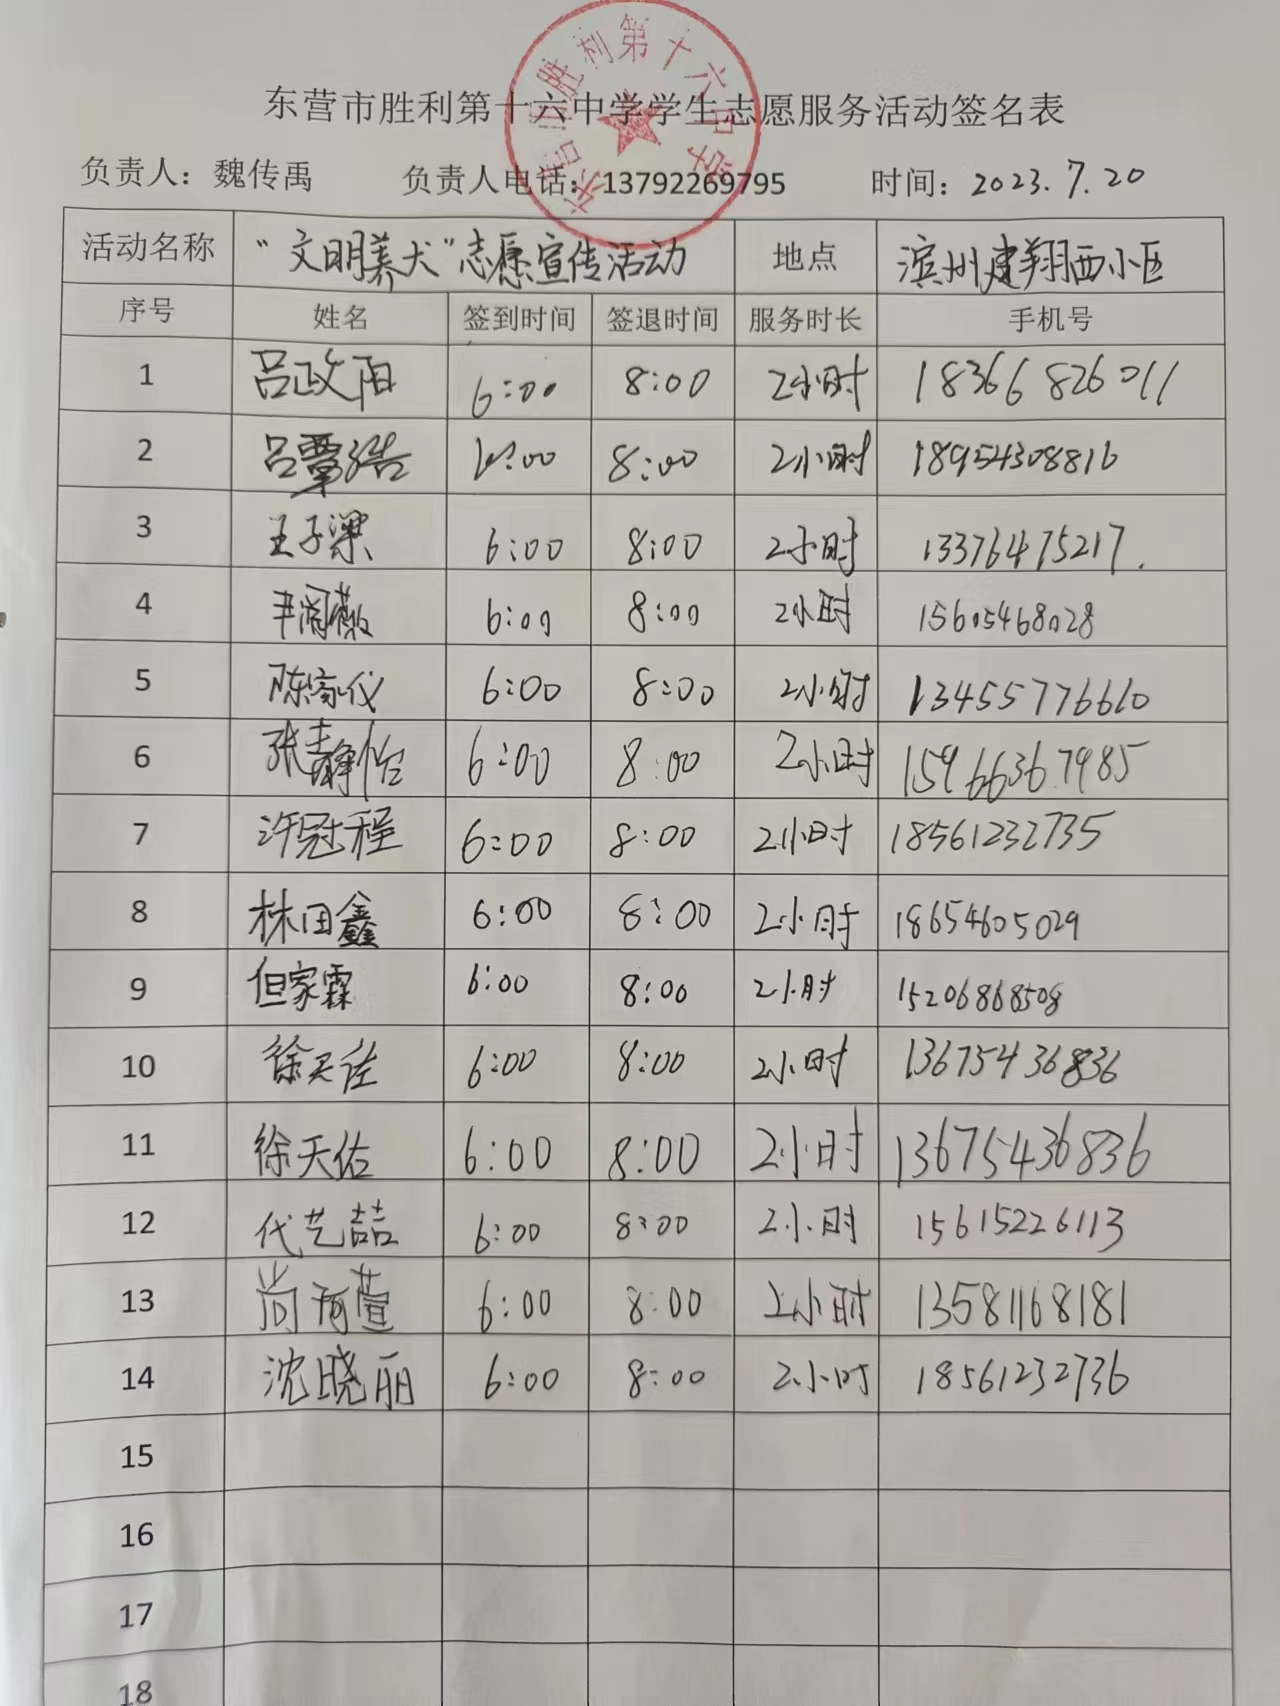 东营市胜利第十六中学
东营市胜利第十六中学学生志愿服务活动签名表
负责人：魏传禹 负责人电话：13792269795 时间：2023.7.20
活动名称 “文明养犬”志愿宣传活动 地点 滨州建翔西小区
序号 姓名 签到时间 签退时间 服务时长 手机号
1 吕政阳 6:00 8:00 2小时 18366826011
2 吕覃浩 6:00 8:00 2小时 18954308816
3 王子梁 6:00 8:00 2小时 13376475217.
4 6:00 8:00 2小时 15605468028
5 陈家仪 6:00 8:00 2小时 13455776610
6 张静怡 6:00 8:00 2小时 15966367985
7 许冠程 6:00 8:00 2小时 18561232735
8 林田鑫 6:00 8:00 2小时 18654605029
9 但家霖 6:00 8:00 2小时 15206868508
10 徐天佳 6:00 8:00 2小时 13675436836
11 徐天佑 6:00 8:00 2小时 13675436836
12 代艺喆 6:00 8:00 2小时 15615226113
13 尚珂萱 6:00 8:00 2小时 13581168181
14 沈晓丽 6:00 8:00 2小时 18561232736
15
16
17
18